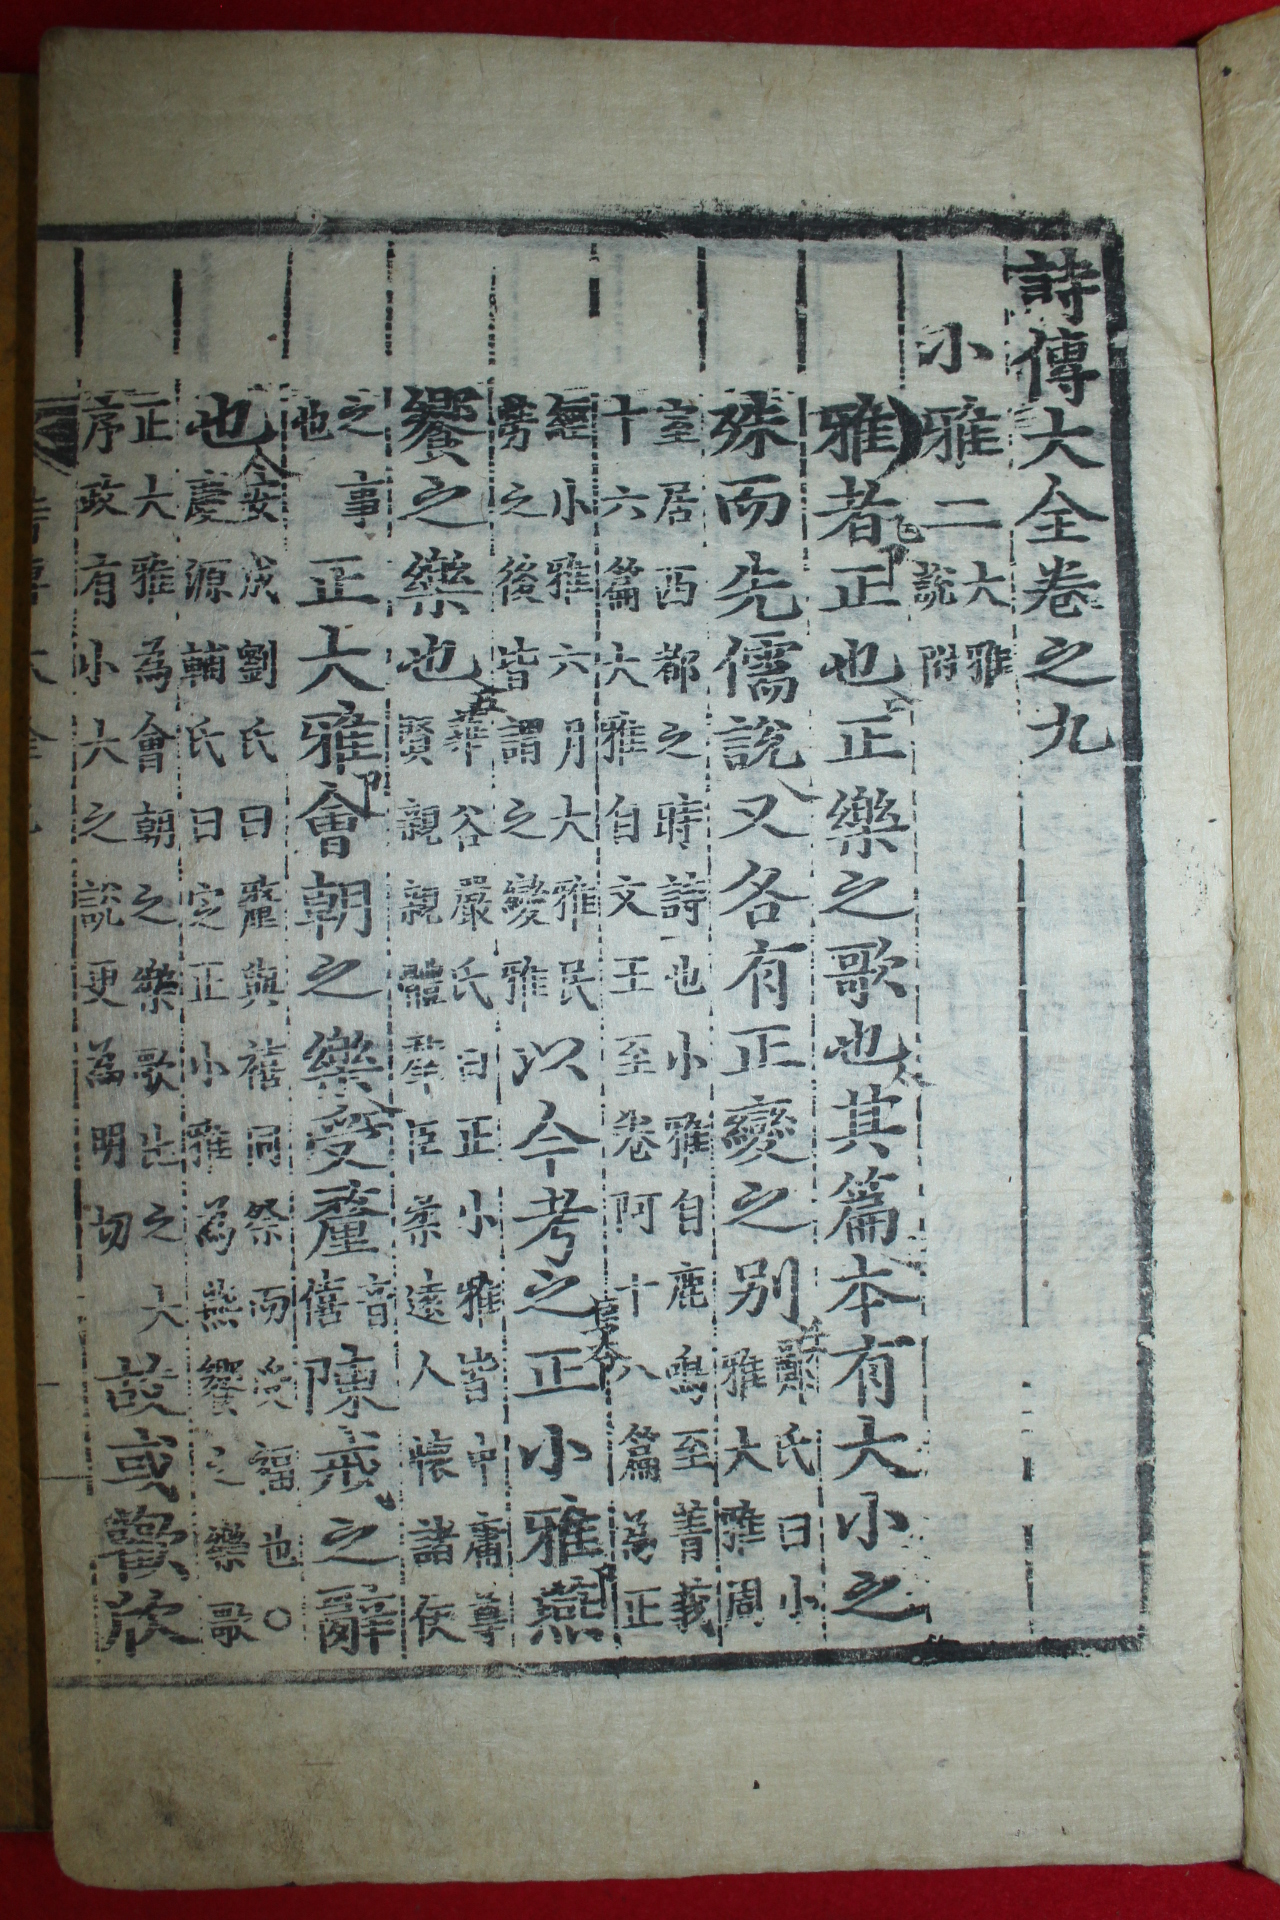 詩傳大全卷之九
小雅二
大雅
說附
雅者正也正樂之歌也其篇本有大小之
殊而先儒說又各有正變之別
鄭氏曰小
雅大雅周
室居西都之時詩也小雅自鹿鳴至菁莪
十六篇大雅自文王至卷阿十八篇為正
經小雅六月大雅民
勞之後皆謂之變雅
以今考之正小雅燕
饗之樂也
華谷嚴氏曰正小雅皆中庸尊
賢親親體羣臣柔遠人懷諸侯
之事
也
正大雅會朝之樂受釐
音
僖
陳戒之辭
也
安成劉氏曰釐與禧同祭而受福也○
慶源輔氏曰定正小雅為燕饗之樂歌
正大雅為會朝之樂歌比之大
序政有小大之說更為明切
故或歡欣